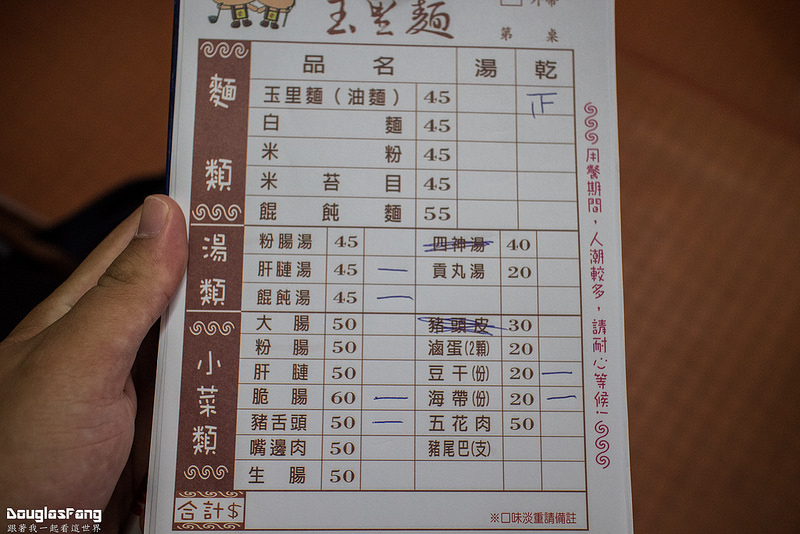 玉里麵
外帶
第 桌
麵類 品名 湯 乾
玉里麵(油麵) 45 正
白麵 45
米粉 45
米苔目 45
餛飩麵 55
湯類
粉腸湯 45 四神湯 40
肝腱湯 45 一 貢丸湯 20
餛飩湯 45 一
小菜類
大腸 50 豬頭皮 30
粉腸 50 滷蛋(2顆) 20
肝腱 50 豆干(份) 20 一
脆腸 60 一 海帶(份) 20 一
豬舌頭 50 一 五花肉 50
嘴邊肉 50 豬尾巴(支)
生腸 50
合計$
※口味淡重請備註
用餐期間，人潮較多，請耐心等候!
DouglasFang
跟著我一起看這世界